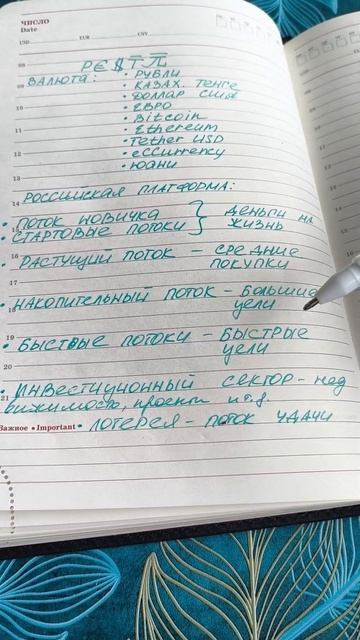 ЧИСЛО
Date
USD EUR CNY
08 Р€$₸Л
ВАЛЮТА: • РУБЛИ
09 • КАЗАХ. ТЕНГЕ
10 • ДОЛЛАР США
• ЕВРО
11 • Bitcoin
• Ethereum
12 • Tether USD
• eCCurrency
13 • ЮАНИ
14
РОССИЙСКАЯ ПЛАТФОРМА:
• ПОТОК НОВИЧКА } ДЕНЬГИ НА
• СТАРТОВЫЕ ПОТОКИ ЖИЗНЬ
16
• РАСТУЩИЙ ПОТОК – СРЕДНИЕ
ПОКУПКИ
17
• НАКОПИТЕЛЬНЫЙ ПОТОК – БОЛЬШИЕ
18 ЦЕЛИ
19
• БЫСТРЫЕ ПОТОКИ – БЫСТРЫЕ
ЦЕЛИ
20
• ИНВЕСТИЦИОННЫЙ СЕКТОР – НЕД
21
вижимость, проекты и т.д.
Важное • Important • ЛОТЕРЕЯ – ПОТОК УДАЧИ